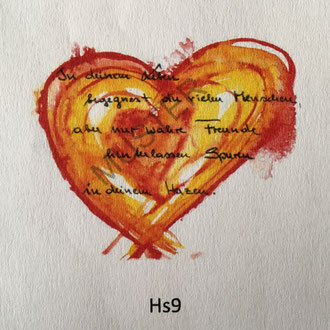 In deinem Leben
begegnest du vielen Menschen,
aber nur wahre Freunde
hinterlassen Spuren
in deinem Herzen.
Hs9